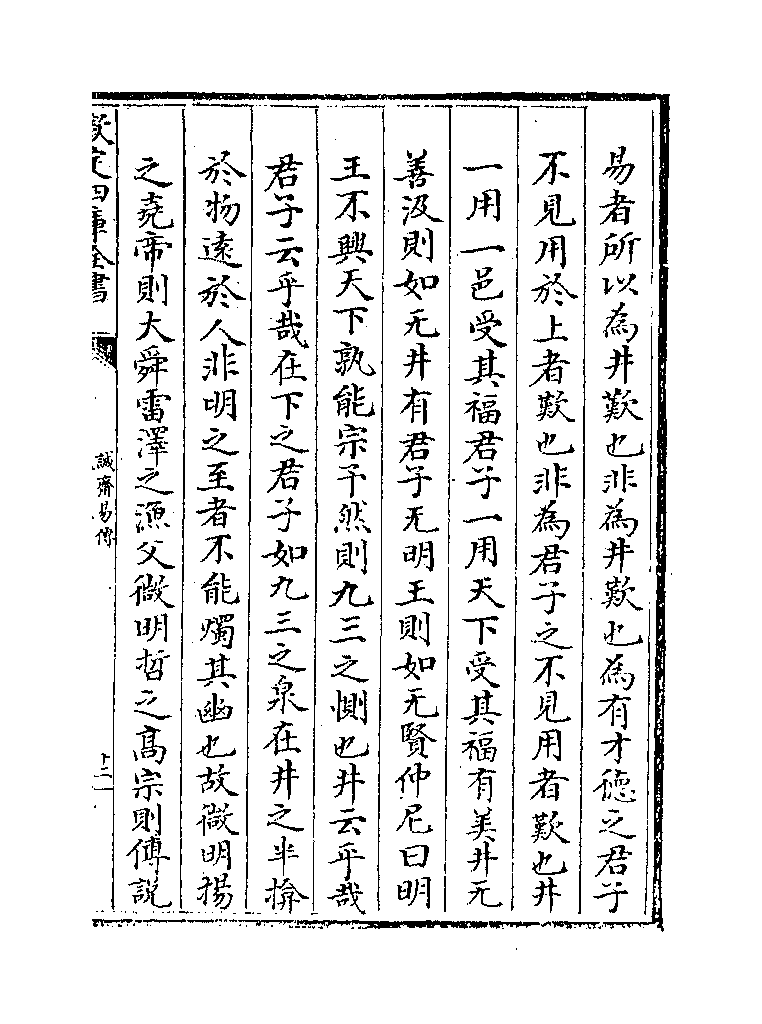 易者所以為井歎也非為井歎也為有才徳之君子
不見用於上者歎也非為君子之不見用者歎也井
一用一邑受其福君子一用天下受其福有美井无
善汲則如无井有君子无明王則如无賢仲尼曰明
王不興天下孰能宗予然則九三之惻也井云乎哉
君子云乎哉在下之君子如九三之泉在井之半揜
於物逺於人非明之至者不能燭其幽也故㣲明揚
之堯帝則大舜雷澤之漁父㣲明哲之髙宗則傅説
欽定四庫全書
誠齋易傳
十二